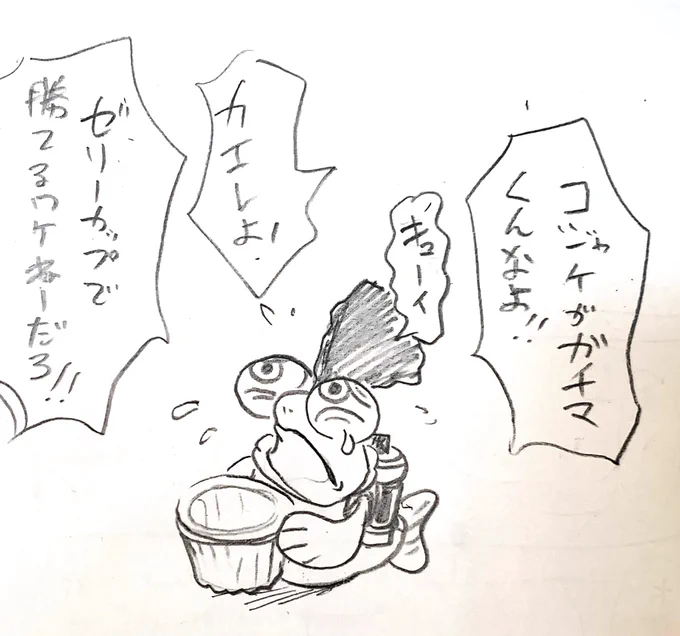 コジャケがガチマ
くんなよ!!
キューィ
カエレよ!
ゼリーカップで
勝てるワケねーだろ!!